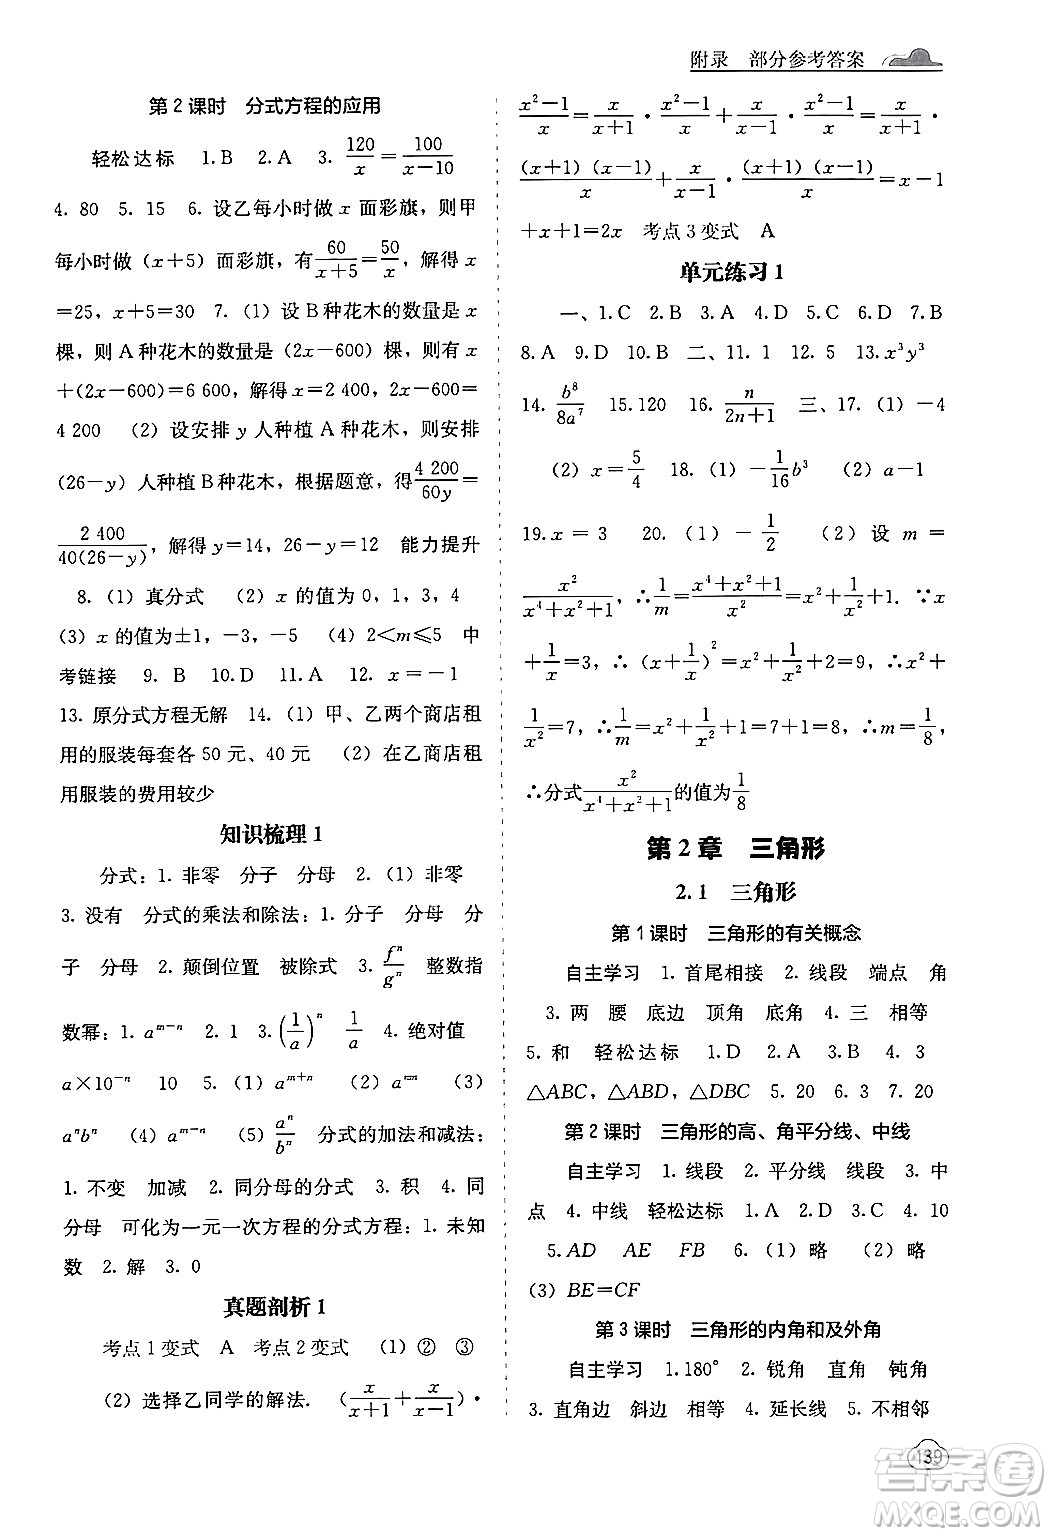 附录 部分参考答案
第2课时 分式方程的应用
轻松达标 1.B 2.A 3. 120/x=100/(x-10)
4. 80 5. 15 6. 设乙每小时做 x 面彩旗,则甲
每小时做(x+5)面彩旗,有60/(x+5)=50/x,解得 x
=25,x+5=30 7. (1)设B种花木的数量是 x
棵,则A种花木的数量是(2x-600)棵,则有 x
+(2x-600)=6 600,解得 x=2 400,2x-600=
4 200 (2)设安排 y 人种植A种花木,则安排
(26-y)人种植B种花木,根据题意,得4 200/60y=
2 400/40(26-y),解得 y=14,26-y=12 能力提升
8. (1)真分式 (2)x 的值为 0,1,3,4
(3)x 的值为±1,-3,-5 (4)2<m≤5 中
考链接 9. B 10.D 11.A 12. x=-1
13. 原分式方程无解 14. (1)甲、乙两个商店租
用的服装每套各 50 元、40 元 (2)在乙商店租
用服装的费用较少
知识梳理 1
分式:1. 非零 分子 分母 2. (1)非零
3. 没有 分式的乘法和除法:1. 分子 分母 分
子 分母 2. 颠倒位置 被除式 3. fⁿ/gⁿ 整数指
数幂:1. aᵐ⁻ⁿ 2. 1 3. (1/a)ⁿ 1/a 4. 绝对值
a×10⁻ⁿ 10 5. (1)aᵐ⁺ⁿ (2)aᵐⁿ (3)
aⁿbⁿ (4)aᵐ⁻ⁿ (5)aⁿ/bⁿ 分式的加法和减法:
1. 不变 加减 2. 同分母的分式 3. 积 4. 同
分母 可化为一元一次方程的分式方程:1. 未知
数 2. 解 3. 0
真题剖析 1
考点1变式 A 考点2变式 (1)② ③
(2)选择乙同学的解法. (x/(x+1)+x/(x-1))·
(x²-1)/x=x/(x+1)·(x²-1)/x+x/(x-1)·(x²-1)/x=x/(x+1)·
(x+1)(x-1)/x+x/(x-1)·(x+1)(x-1)/x=x-1
+x+1=2x 考点3变式 A
单元练习 1
一、1.C 2.B 3.A 4.D 5.C 6.D 7.B
8.A 9.D 10.B 二、11. 1 12. 5 13. x³y³
14. b⁸/8a⁷ 15.120 16. n/(2n+1) 三、17. (1)-4
(2)x=5/4 18. (1)-1/16b³ (2)a-1
19. x=3 20. (1)-1/2 (2)设 m=
x²/(x⁴+x²+1),∴1/m=(x⁴+x²+1)/x²=x²+1/x²+1. ∵x
+1/x=3,∴(x+1/x)²=x²+1/x²+2=9,∴x²+
1/x²=7,∴1/m=x²+1/x²+1=7+1=8,∴m=1/8,
∴分式x²/(x⁴+x²+1)的值为1/8
第2章 三角形
2.1 三角形
第1课时 三角形的有关概念
自主学习 1. 首尾相接 2. 线段 端点 角
3. 两 腰 底边 顶角 底角 4. 三 相等
5. 和 轻松达标 1.D 2.A 3.B 4. 3
△ABC,△ABD,△DBC 5. 20 6. 3 7. 20
第2课时 三角形的高、角平分线、中线
自主学习 1. 线段 2. 平分线 线段 3. 中
点 4. 中线 轻松达标 1.A 2.D 3.C 4. 10
5. AD AE FB 6. (1)略 (2)略
(3)BE=CF
第3课时 三角形的内角和及外角
自主学习 1.180° 2. 锐角 直角 钝角
3. 直角边 斜边 相等 4. 延长线 5. 不相邻
139
答案圈
MXQE.COM